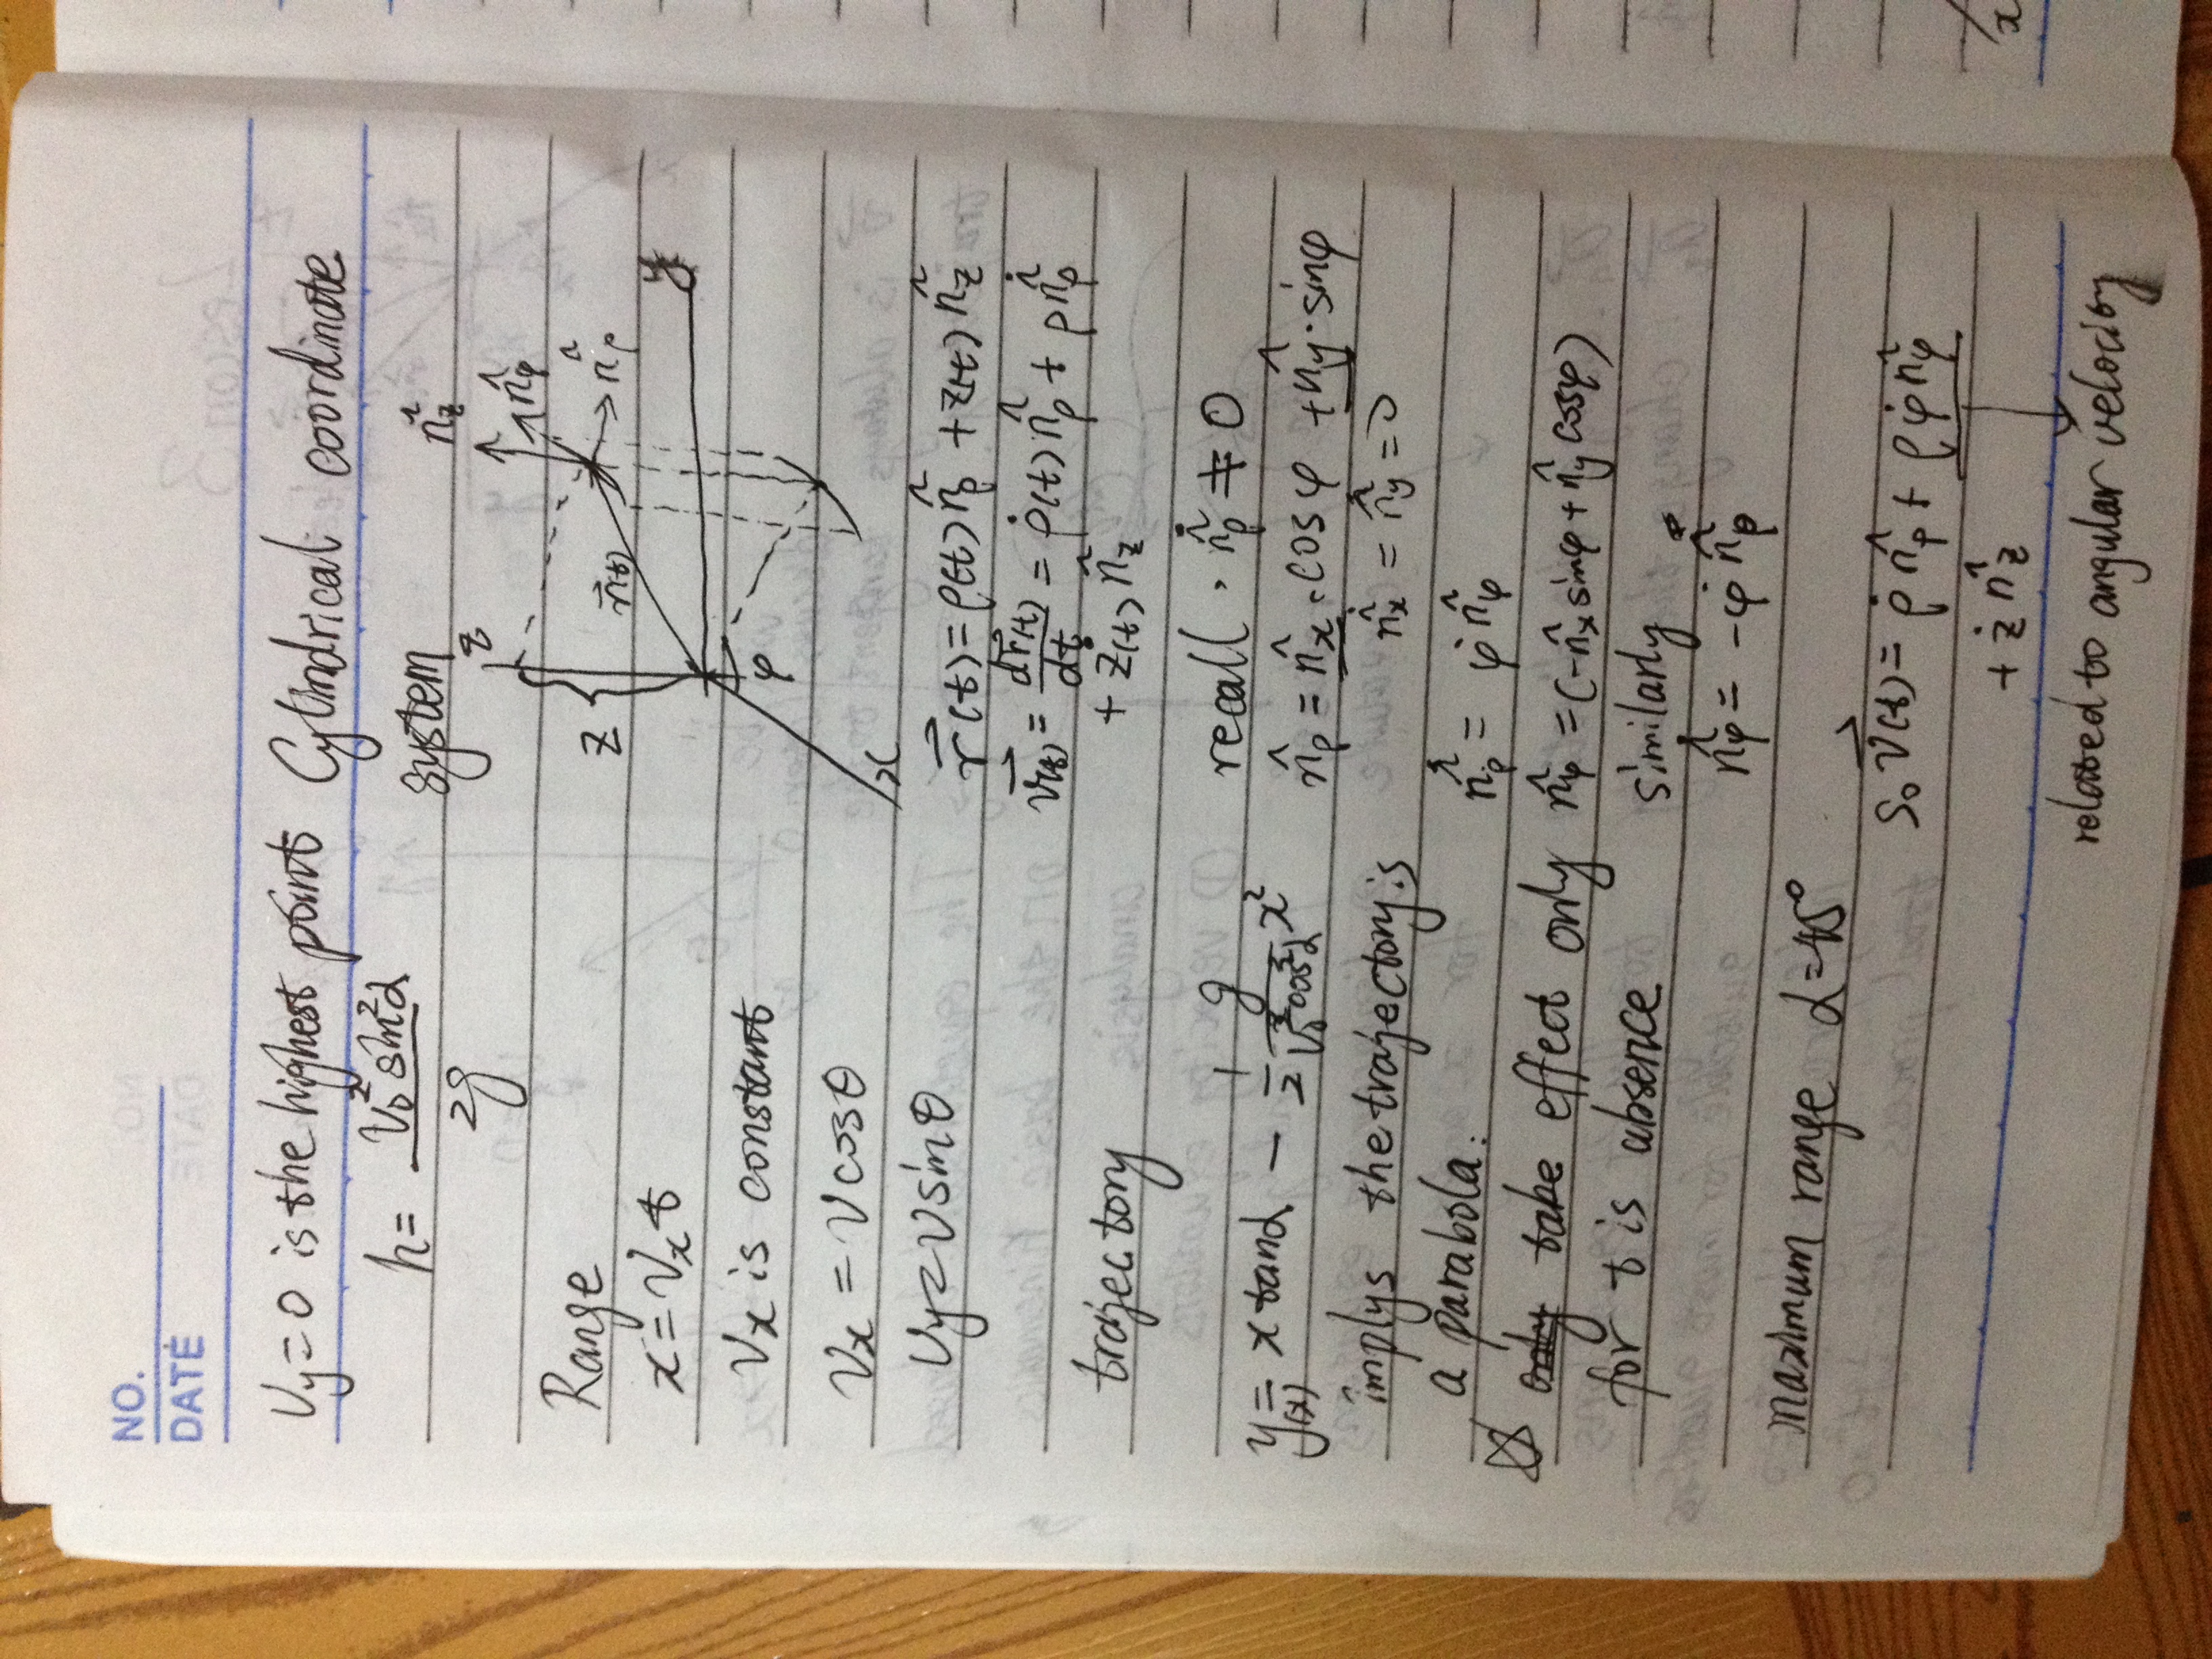 NO.
DATE
Vy=0 is the highest point
h= V₀² sin²α / 2g
Range
x = Vx t
Vx is constant
Vx = V cosθ
Vy = V sinθ
trajectory
y(x) = x tanα − 1/2 g/(V₀² cos²α) x²
implys the trajectory is
a parabola.
☆ only take effect only
for t is absence
maximum range α=45°
Cylindrical coordinate
system
z
n̂z
n̂φ
Z
r⃗(t)
n̂ρ
y
φ
x
r⃗(t) = ρ(t) n̂ρ + z(t) n̂z
v⃗(t) = dr⃗(t)/dt = ρ̇(t) n̂ρ + ρ n̂̇ρ
+ ż(t) n̂z
recall , n̂̇ρ ≠ 0
n̂ρ = n̂x · cosφ + n̂y · sinφ
n̂̇x = n̂̇y = 0
n̂̇ρ = φ̇ n̂φ
n̂φ = (−n̂x sinφ + n̂y cosφ)
similarly
n̂̇φ = −φ̇ n̂ρ
So v⃗(t) = ρ̇ n̂ρ + ρφ̇ n̂φ
+ ż n̂z
related to angular velocity
x